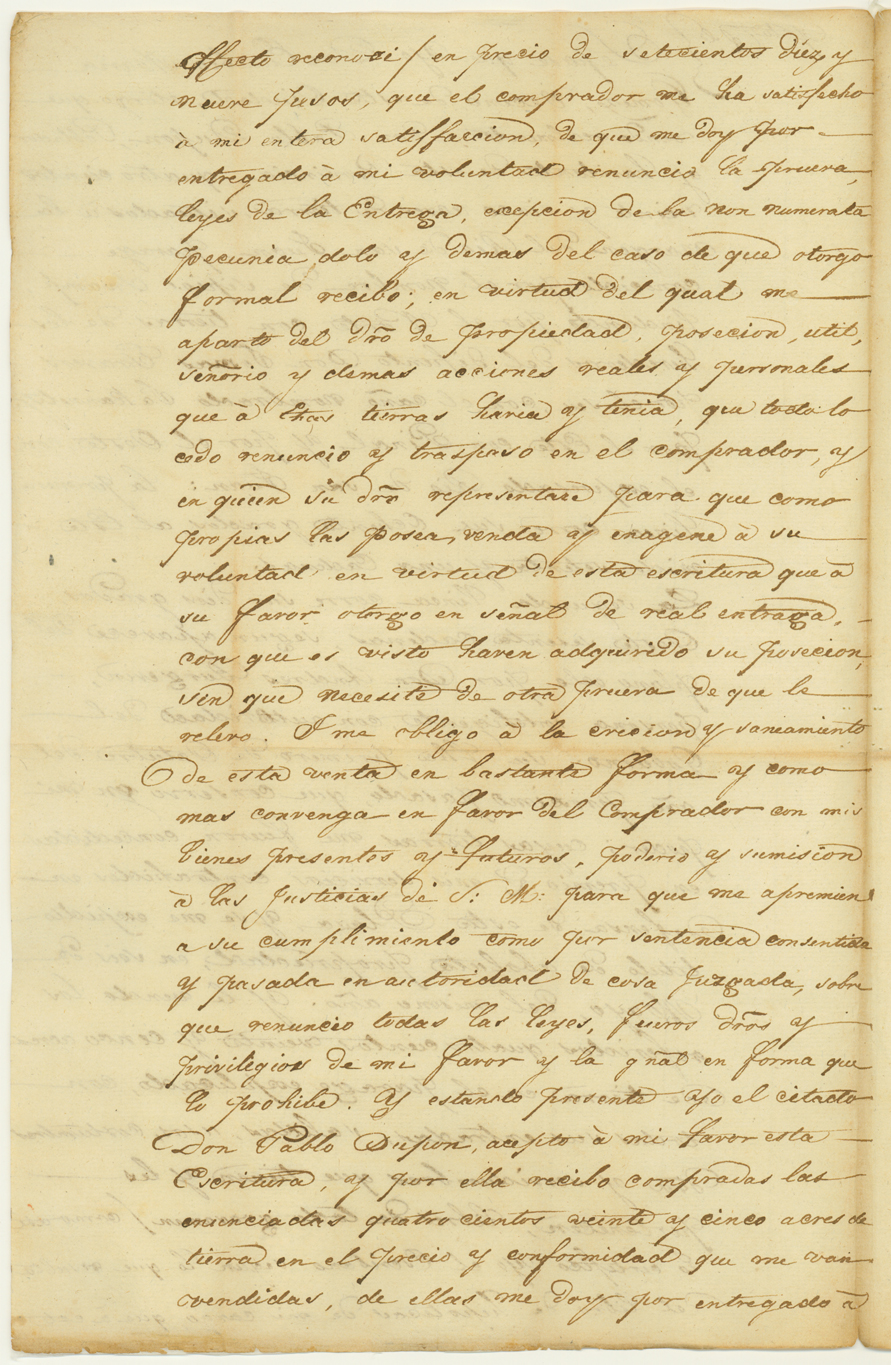 effecto reconoci / en precio de setecientos diez y
nueve pesos, que el comprador me ha satisfecho
à mi entera satisffaccion, de que me doy por
entregado à mi voluntad renuncio la prueva,
leyes de la Entrega, excepcion de la non numerata
pecunia dolo y demas del caso de que otorgo
formal recibo; en virtud del qual me
aparto del dro de propiedad, posecion, util,
señorio y demas acciones reales y personales
que à dhas tierras havia y tenia, que todo lo
cedo renuncio y traspaso en el comprador, y
en quien su dro representare para que como
propias las posea, venda y enagene à su
voluntad en virtud de esta escritura que à
su favor otorgo en señal de real entraga,
con que es visto haver adquirido su posecion,
sin que necesite de otra prueva de que le
relevo. I me obligo à la eviccion y saneamiento
de esta venta en bastante forma y como
mas convenga en favor del Comprador con mis
bienes presentes y futuros, poderio y sumision
à las Justicias de S: M: para que me apremien
a su cumplimiento como por sentencia consentida
y pasada en autoridad de cosa Juzgada, sobre
que renuncio todas las leyes, fueros dros y
privilegios de mi favor y la gñal en forma que
lo prohibe. Y estando presente yo el citado
Don Pablo Dupon, acepto à mi favor esta
Escritura, y por ella recibo compradas las
enunciadas quatrocientos veinte y cinco acres de
tierra en el precio y conformidad que me van
vendidas, de ellas me doy por entregado à